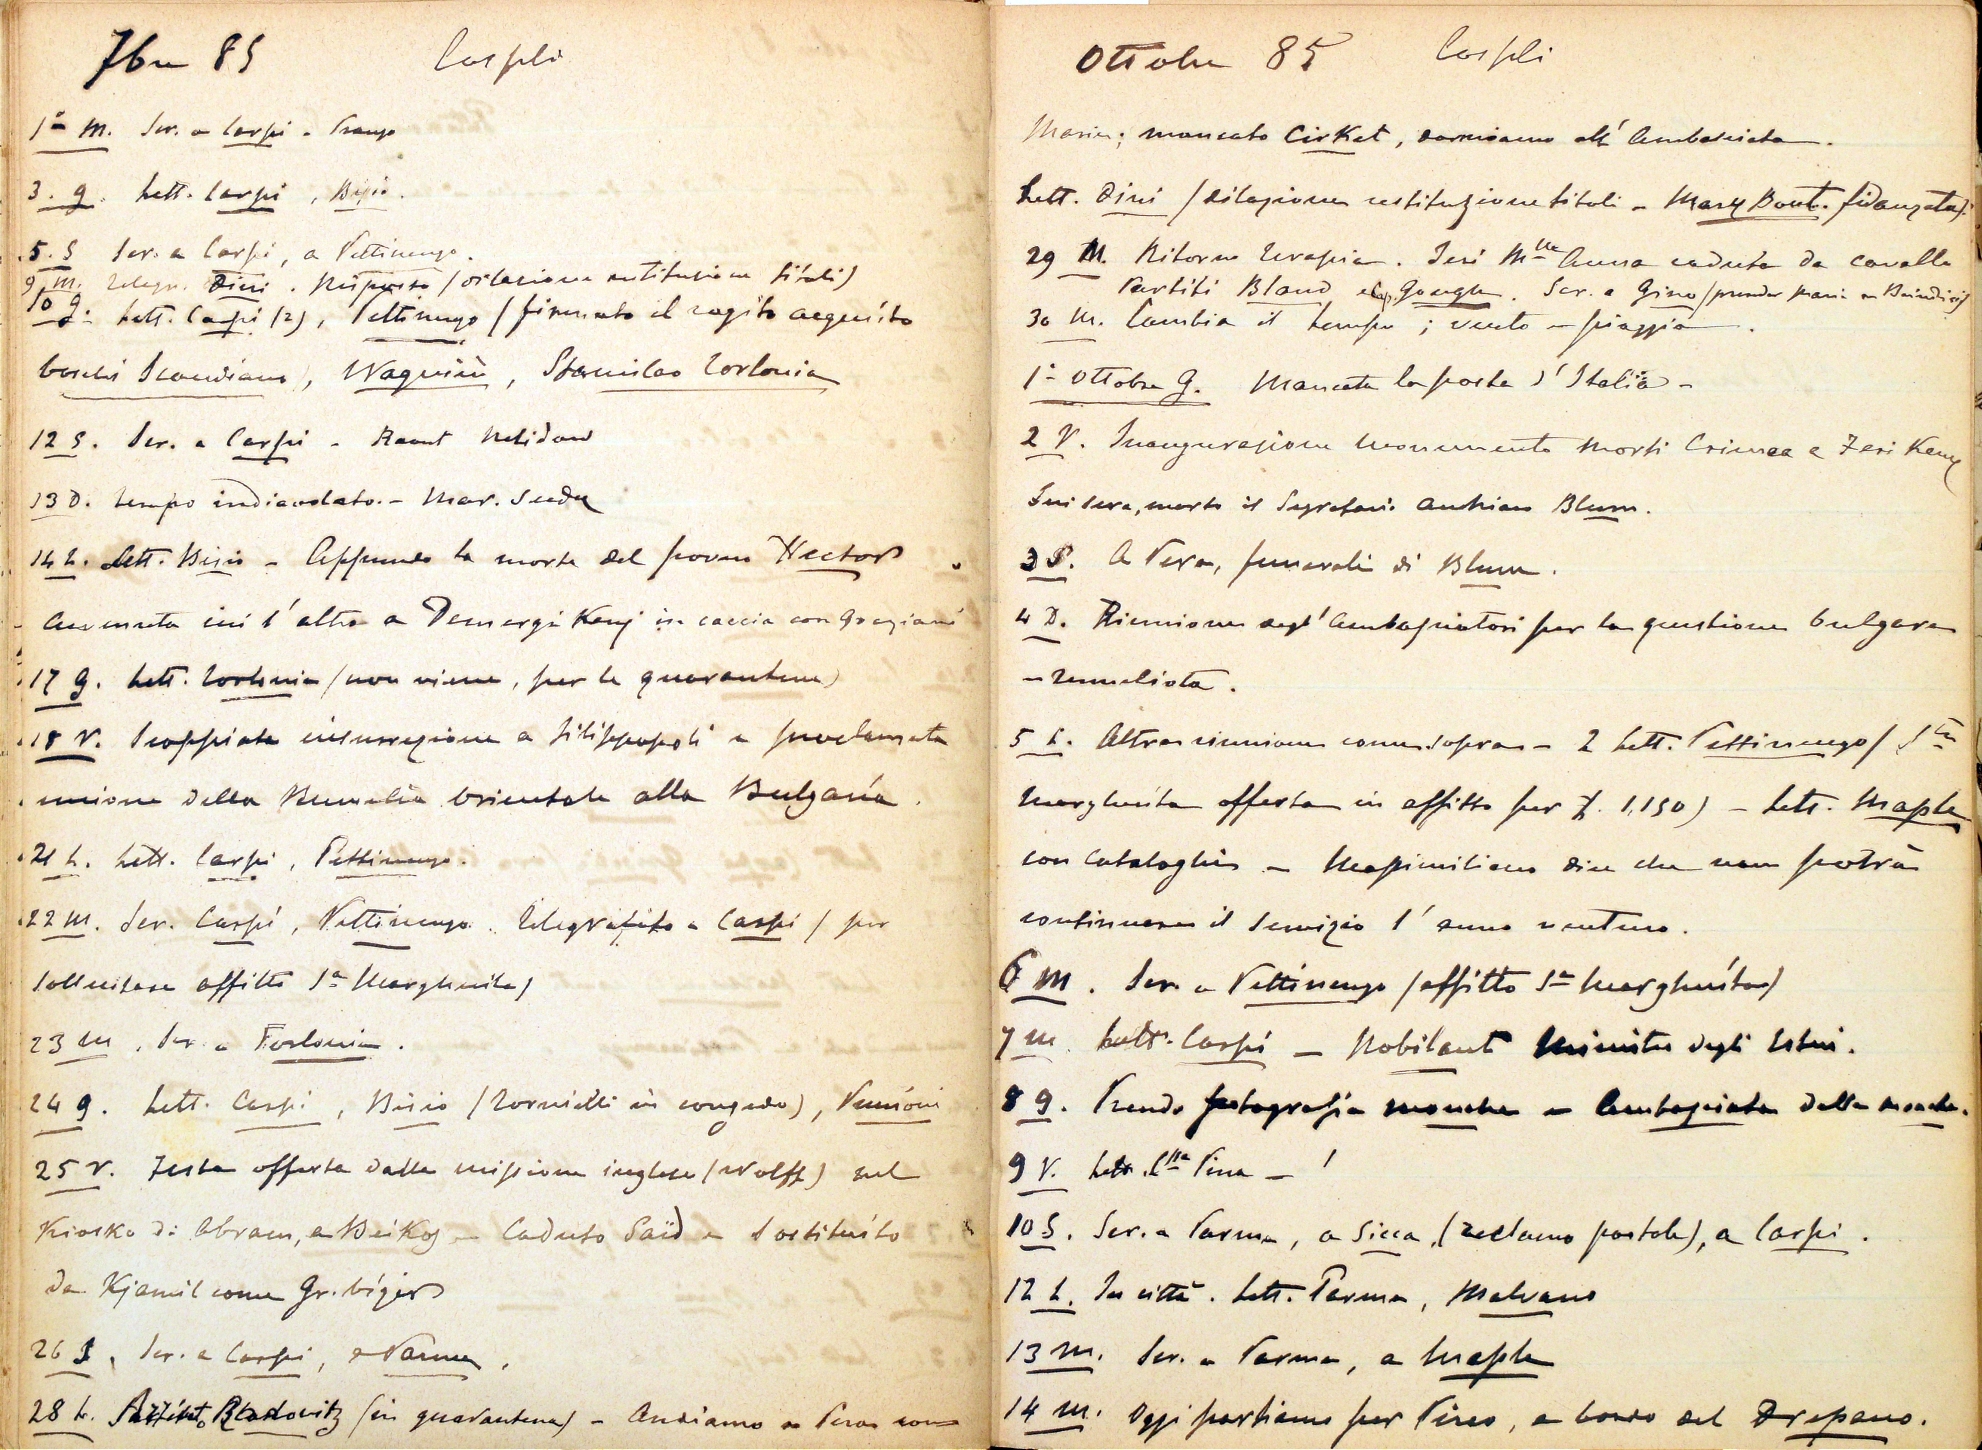 7bre 85
1º M. Scr. a Carpi - Pranzo
3. G. Lett. Carpi, Bisio.
5. S Scr. a Carpi, a Pettinengo.
9 M. Telegr. Dini. Risposto (dilazione restituzione titoli)
10 G. Lett. Carpi (2), Pettinengo (firmato il rogito acquisto
boschi Scandiano), Wagnière, Stanislao Torlonia
12 S. Scr. a Carpi - Raout Nelidow
13 D. Tempo indiavolato. - Mar.
14 L. Lett. Bisio - Apprendo la morte del povero Hector
avvenuta ieri l'altro a Demergi Keuj in caccia con Graziani
17 G. Lett. Torlonia (non viene, per le quarantene)
18 V. Scoppiata insurrezione a Filippopoli e proclamata
unione della Rumelia Orientale alla Bulgaria.
21 L. Lett. Carpi, Pettinengo.
22 M. Scr. Carpi, Pettinengo. Telegrafato a Carpi (per
sollecitare affitto Sa Margherita)
23 M. Scr. a Torlonia.
24 G. Lett. Carpi, Bisio (Tornielli in congedo), Pansioni
25 V. Festa offerta dalla missione inglese (Wolff) nel
Kiosko di Abram, a Béikos - Caduto Saïd e sostituito
da Kjamil come Gr. Vizir
26 S. Scr. a Carpi, e Parma.
28 L. Radowitz (in quarantena) - Andiamo a Pera con
Ottobre 85
Maria; mancato Cirket, dormiamo all'Ambasciata.
Lett. Dini (dilazione restituzione titoli - Mary Bout. fidanzata).
29 M. Ritorno Terapia. Ieri Mlle Anna caduta da cavallo
Partiti Bland e Cap. Gough. Scr. a Gino (prender Maria a Brindisi)
30 M. Cambia il tempo; vento e pioggia.
1º Ottobre G. Mancata la posta d'Italia -
2 V. Inaugurazione monumento morti Crimea a Feri Keuy
Ieri sera, morto il Segretario austriaco Blum.
3 S. A Pera, funerali di Blum.
4 D. Riunione degl'Ambasciatori per la questione bulgara
- rumeliota.
5 L. Altra riunione come sopra - 2 Lett. Pettinengo (Sta
Margherita offerta in affitto per £. 1,150) - Lett. Maple
con cataloghi - Massimiliano dice che non potrà
continuare il servizio l'anno venturo.
6 M. Scr. a Pettinengo (affitto Sa Margherita)
7 M. Lett. Carpi - Robilant Ministro degli Esteri.
8 G. Prendo fotografia mouche e Ambasciata dalla mouche.
9 V. Lett. Clla Pina - !
10 S. Scr. a Parma, a Sicca (reclamo postale), a Carpi.
12 L. In città. Lett. Parma, Malvano
13 M. Scr. a Parma, a Maple
14 M. Oggi partiamo per Pireo, a bordo del Drepano.